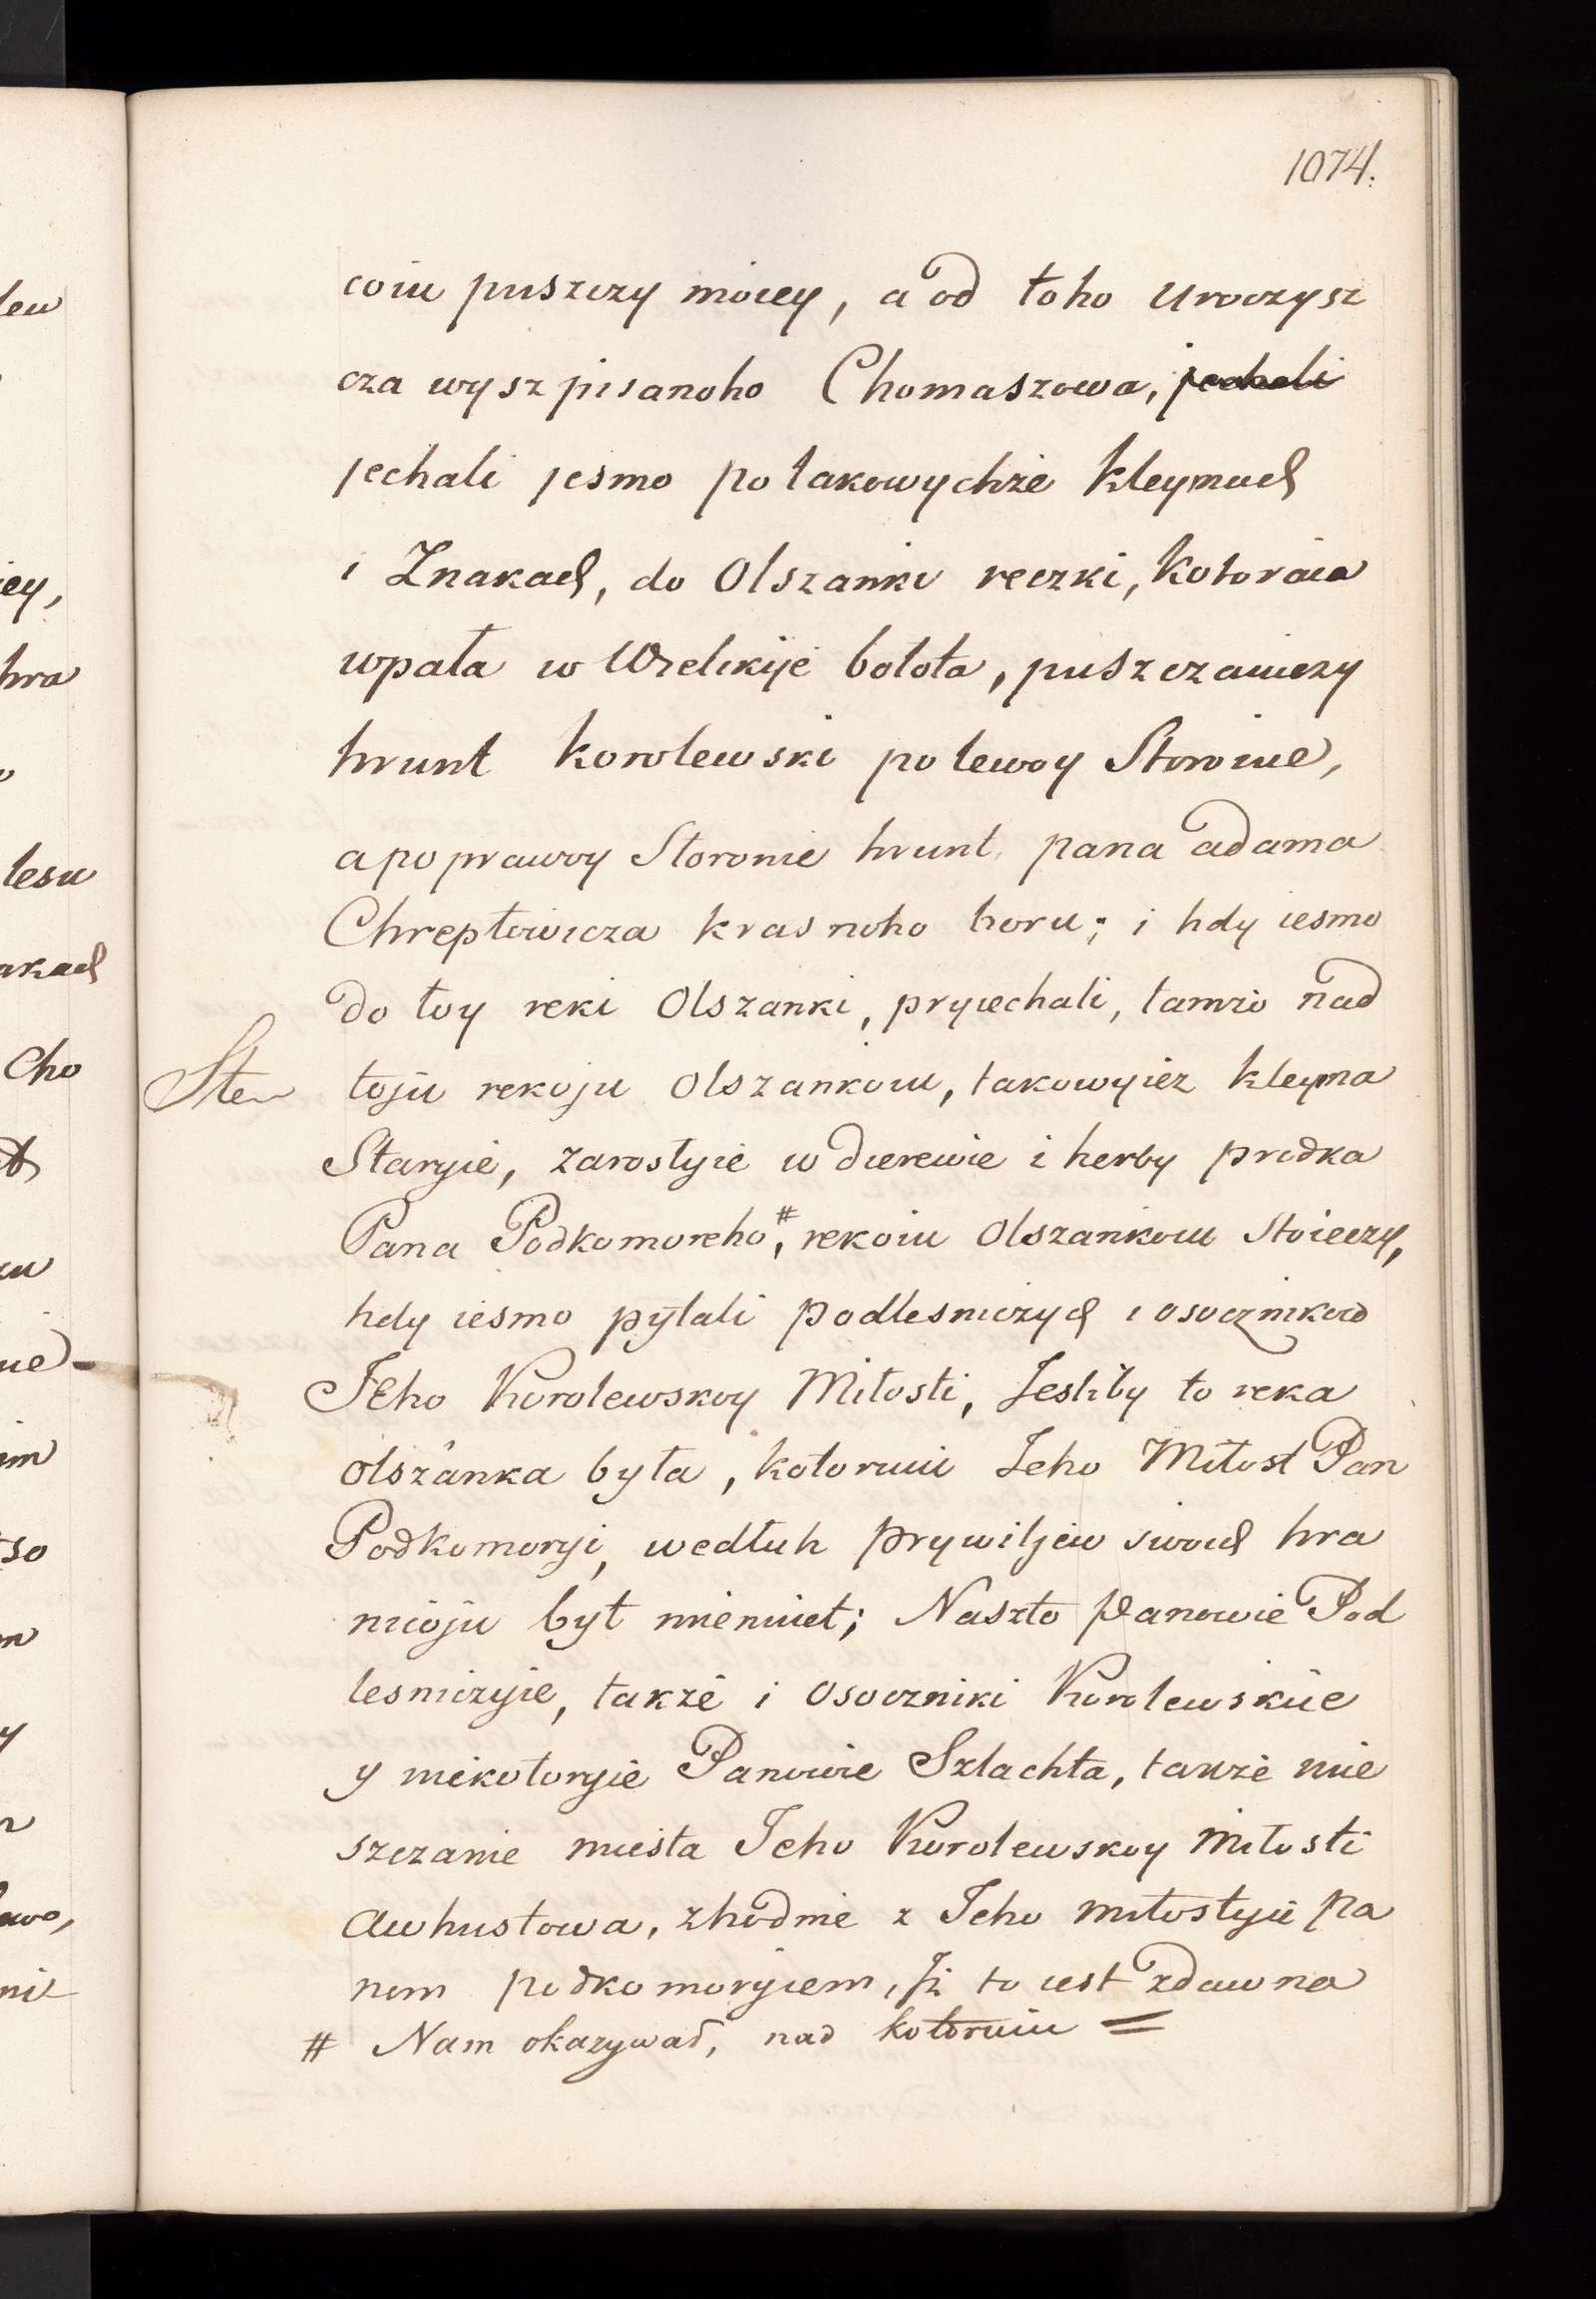 1074.
coiu puszczy moiey, a od toho Uroczysz
cza wysz pisanoho Chomaszowa, jechali
jechali jesmo po takowychże kleymach
i Znakach, do Olszanki reczki, kotoraia
wpała w Welikije bołota, puszczaiuczy
hrunt korolewski po lewoy Storonie,
a po prawoy Storonie hrunt pana adama
Chreptowicza krasnoho boru; i hdy iesmo
do toy reki Olszanki, pryiechali, tamżo nad
Ste
toju rekoju Olszankoiu, takowyież kleyma
Staryie, zarostyie w dierewie i herby prodka
Pana Podkomoreho,# rekoiu Olszankoiu Stoieczy,
hdy iesmo pytali podlesniczych i osocznikow
JEho Korolewskoy Miłosti, Jesliby to reka
olszanka była, kotoruiu Jeho Miłost Pan
Podkomoryi, wedłuh prywiljew swoich hra
nicoju być mienit; Naszto Panowie Pod
lesniczyie, także i Osoczniki Korolewskiie
y niekotoryie Panowie Szlachta, także mie
szczanie miesta Jeho Korolewskoy Miłosti
Awhustowa, zhodnie z Jeho miłostyiu pa
nom podkomoryiem, Jż to iest zdawna
# Nam okazywał, nad kotoruiu =